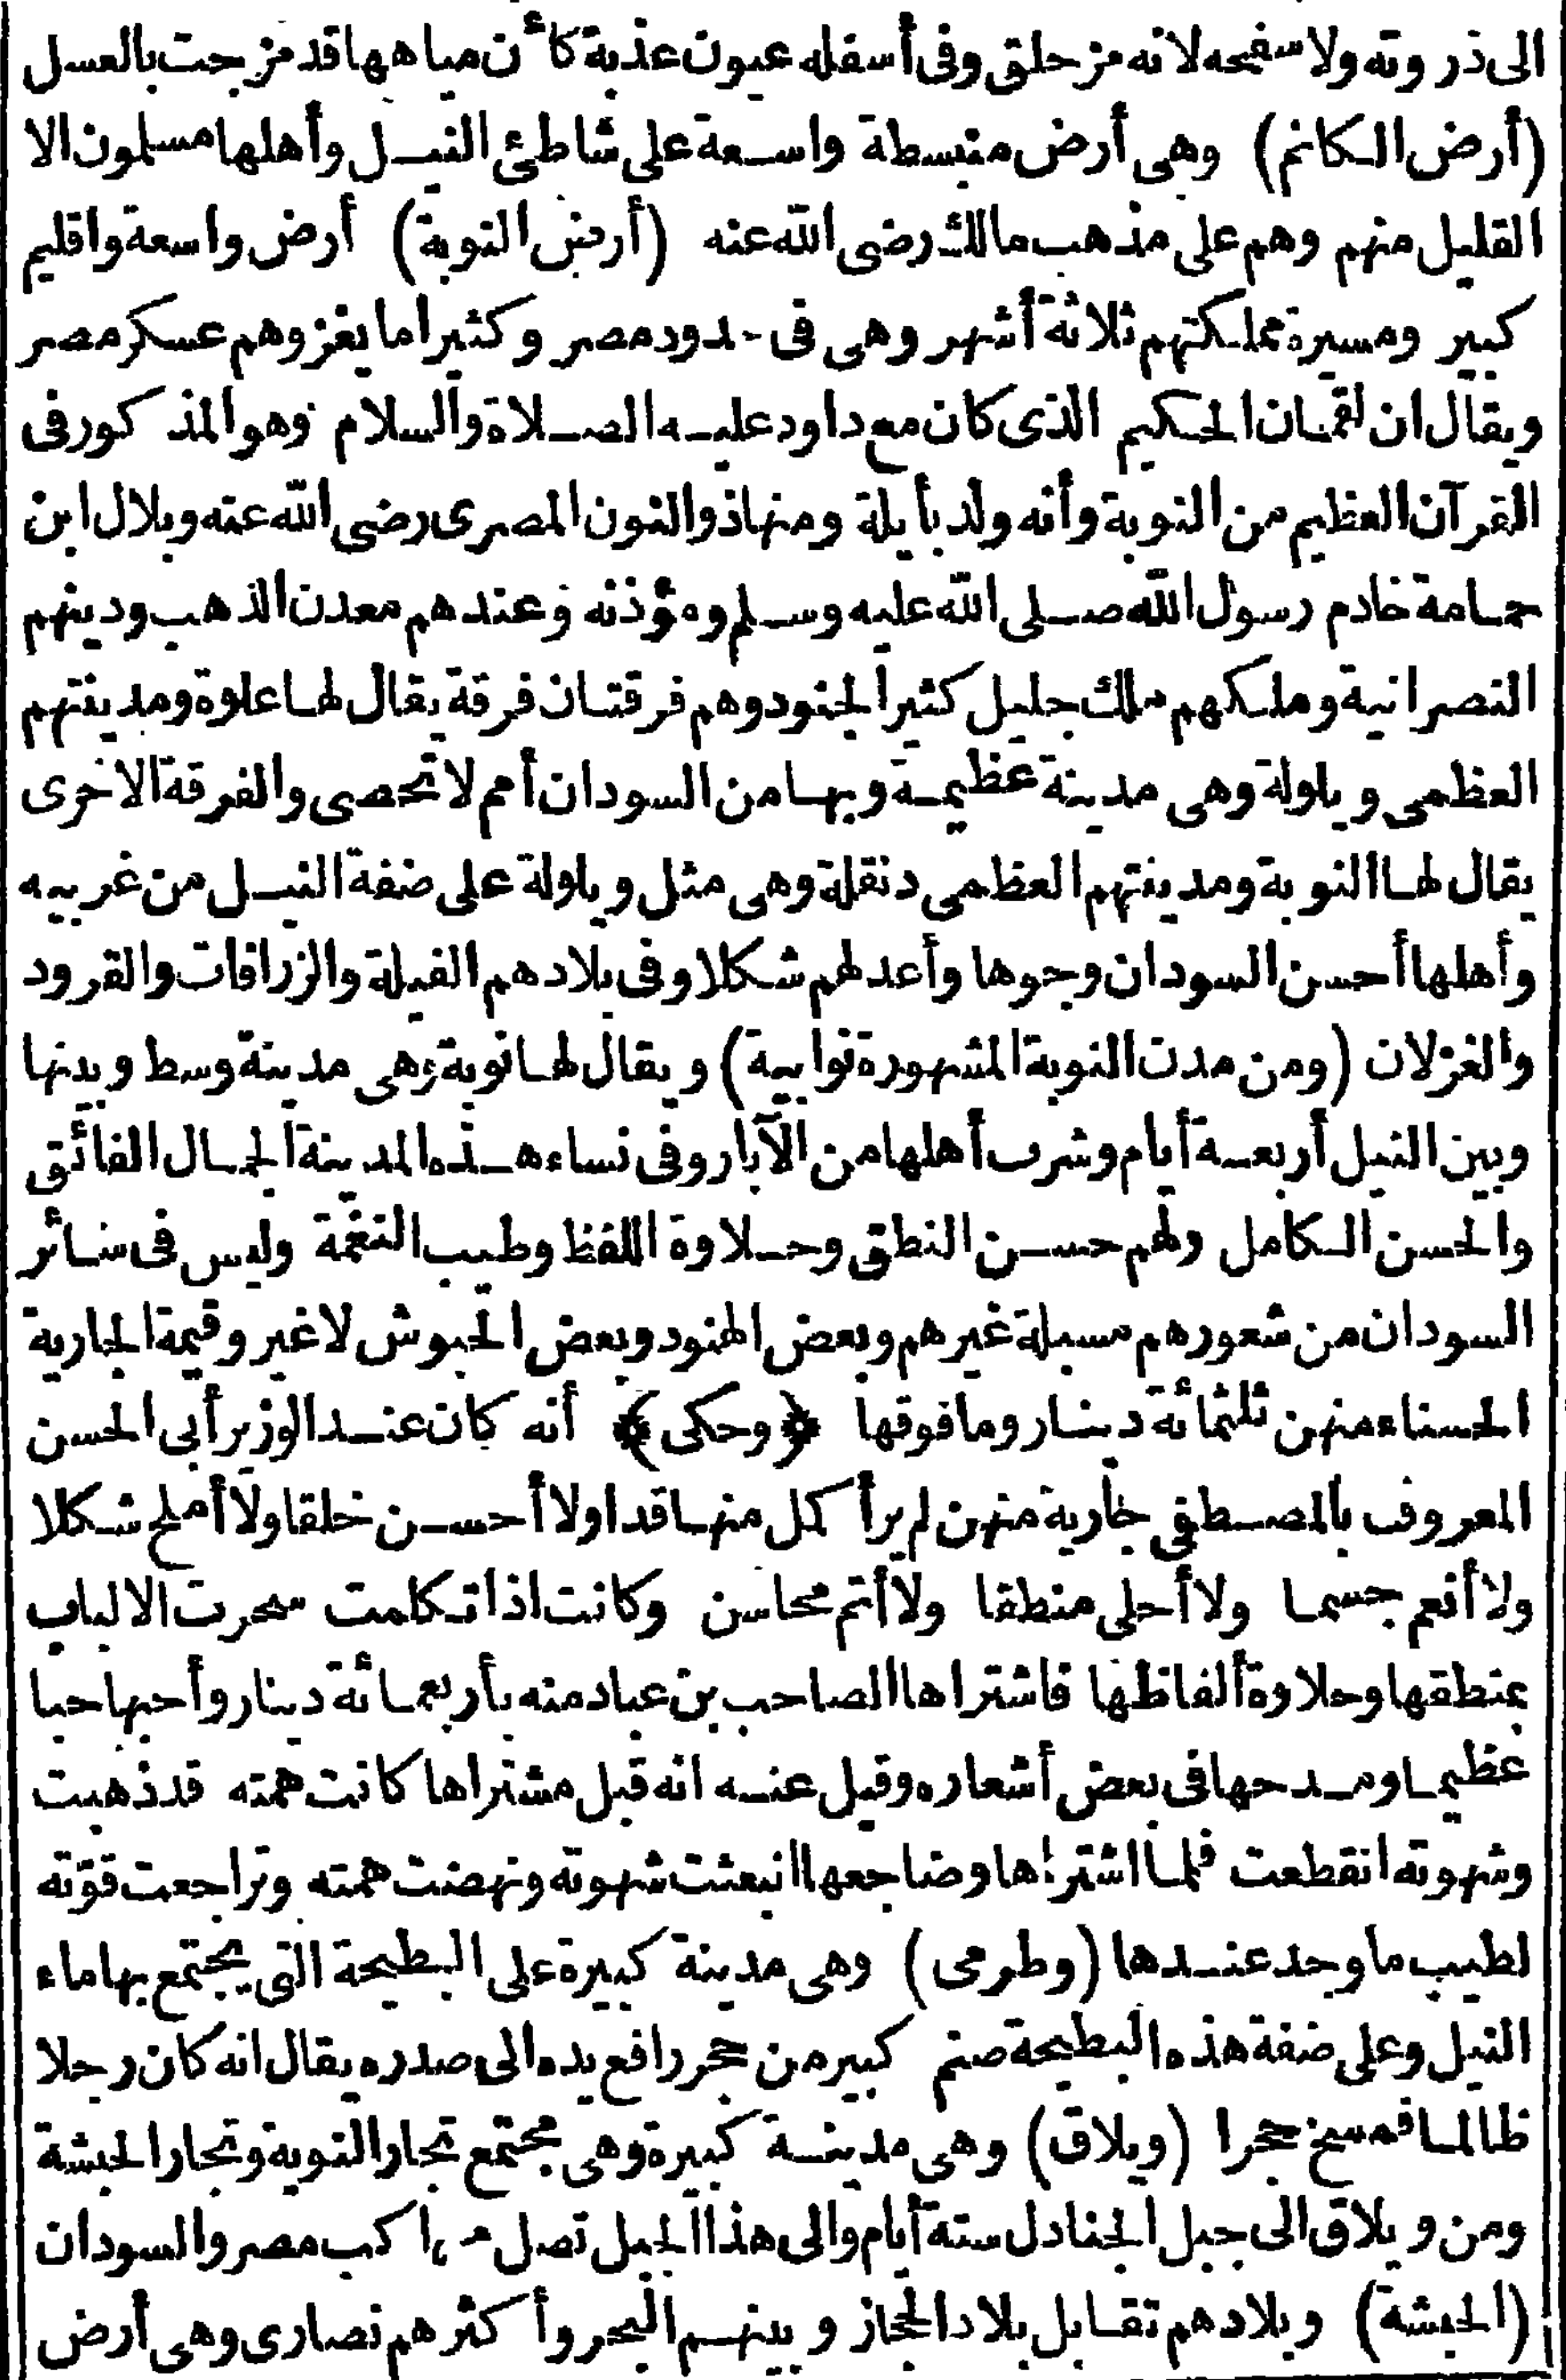 الى ذروته ولا سفحه لانه مزحلق وفى أسفله عيون عذبة كأن مياهها قد مزجت بالعسل
(أرض الكانم) وهى أرض منبسطة واسعة على شاطئ النيل وأهلها مسلمون الا
القليل منهم وهم على مذهب مالك رضى الله عنه (أرض النوبة) أرض واسعة واقليم
كبير ومسيرة مملكتهم ثلاثة أشهر وهى فى حدود مصر وكثيرا ما يغزوهم عسكر مصر
ويقال ان لقمان الحكيم الذى كان مع داود عليه الصلاة والسلام وهو المذكور فى
القرآن العظيم من النوبة وأنه ولد بأيلة ومنها ذو النون المصرى رضى الله عنه وبلال ابن
حمامة خادم رسول الله صلى الله عليه وسلم ومؤذنه وعندهم معدن الذهب ودينهم
النصرانية وملكهم ملك جليل كثير الجنود وهم فرقتان فرقة يقال لها علوة ومدينتهم
العظمى ويلولة وهى مدينة عظيمة وبها من السودان أمم لا تحصى والفرقة الاخرى
يقال لها النوبة ومدينتهم العظمى دنقلة وهى مثل ويلولة على ضفة النيل من غربيه
وأهلها أحسن السودان وجوها وأعدلهم شكلا وفى بلادهم الفيلة والزرافات والقرود
والغزلان (ومن مدن النوبة المشهورة نوابية) ويقال لها نوبة وهى مدينة وسط وبينها
وبين النيل أربعة أيام وشرب أهلها من الآبار وفى نساء هذه المدينة الجمال الفائق
والحسن الكامل ولهم حسن النطق وحلاوة اللفظ وطيب النغمة وليس فى سائر
السودان من شعورهم مسبلة غيرهم وبعض الهنود وبعض الحبوش لا غير وقيمة الجارية
الحسناء منهن ثلثمائة دينار وما فوقها ﴿وحكى﴾ أنه كان عند الوزير أبى الحسن
المعروف بالمصطفى جارية منهن لم ير أكمل منها قدا ولا أحسن خلقا ولا أملح شكلا
ولا أنعم جسما ولا أحلى منطقا ولا أتم محاسن وكانت اذا تكلمت سحرت الالباب
بمنطقها وحلاوة ألفاظها فاشتراها الصاحب بن عباد منه بأربعمائة دينار وأحبها حبا
عظيما ومدحها فى بعض أشعاره وقيل عنه انه قبل مشتراها كانت همته قد ذهبت
وشهوته انقطعت فلما اشتراها وضاجعها انبعثت شهوته ونهضت همته وتراجعت قوّته
لطيب ما وجد عندها (وطرمى) وهى مدينة كبيرة على البطيحة التى يجتمع بها ماء
النيل وعلى ضفة هذه البطيحة صنم كبير من حجر رافع يده الى صدره يقال انه كان رجلا
ظالما فمسخ حجرا (ويلاق) وهى مدينة كبيرة وهى مجتمع تجار النوبة وتجار الحبشة
ومن ويلاق الى جبل الجنادل ستة أيام والى هذا الجبل تصل مراكب مصر والسودان
(الحبشة) وبلادهم تقابل بلاد الحجاز وبينهم البحر وأكثرهم نصارى وهى أرض